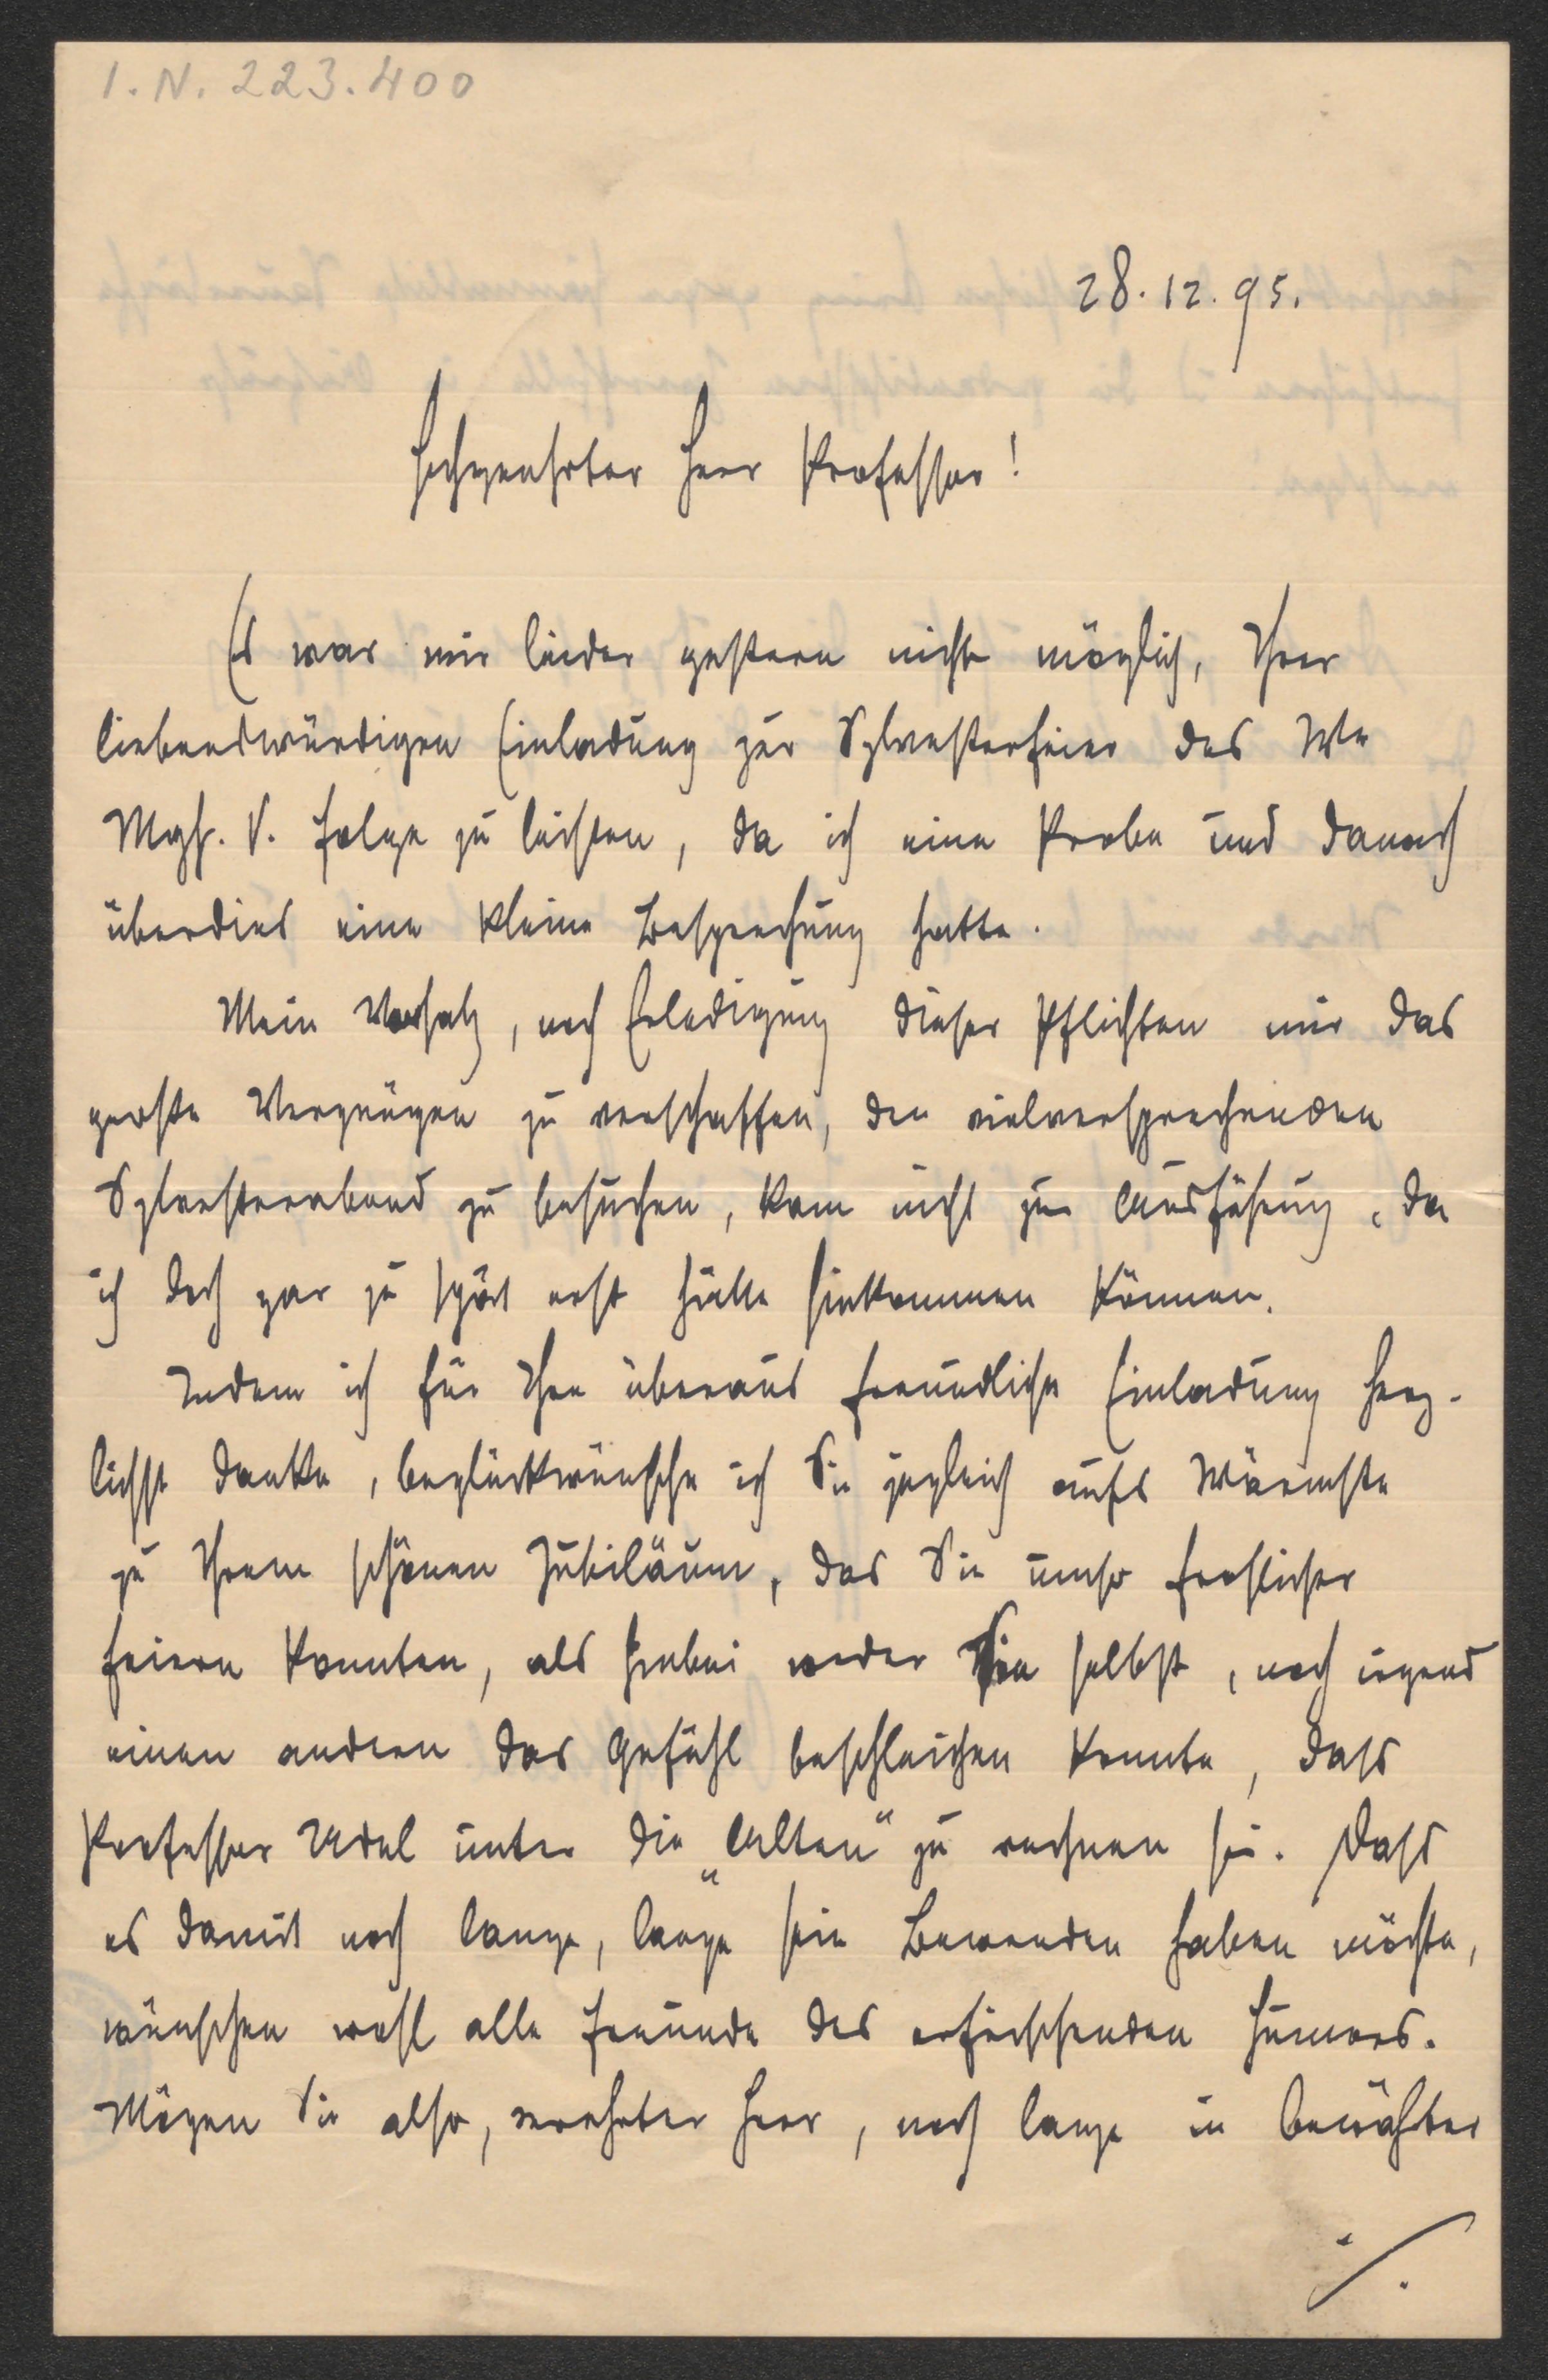 I.N. 223.400
28.12.95.
Hochgeehrter Herr Professor!
Es war mir leider gestern nicht möglich, Ihrer
liebenswürdigen Einladung zur Sylvesterfeier des Wr
Mgs. V. Folge zu leisten, da ich eine Probe und danach
überdies eine kleine Besprechung hatte.
Mein Vorsatz, nach Erledigung dieser Pflichten mir das
große Vergnügen zu verschaffen, den vielversprechenden
Sylvesterabend zu besuchen, kam nicht zur Ausführung, da
ich doch gar zu spät erst hätte hinkommen können.
Indem ich für Ihre überaus freundliche Einladung herz-
lichst danke, beglückwünsche ich Sie zugleich aufs Wärmste
zu Ihrem schönen Jubiläum, das Sie umso fröhlicher
feiern konnten, als hiebei weder Sie selbst, noch irgend
einen andren das Gefühl beschleichen konnte, dass
Professor Udel unter die „Alten“ zu rechnen sei. Dass
es damit noch lange, lange sein Bewenden haben möchte,
wünschen wohl alle Freunde des erfrischenden Humors.
Mögen Sie also, verehrter Herr, noch lange in bewährter
./.